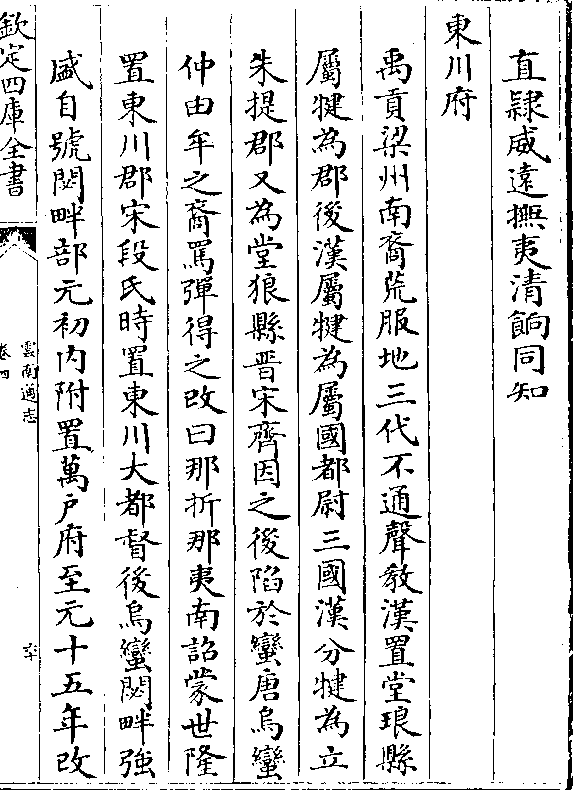 直隸威遠撫夷清餉同知
東川府
禹貢梁州南裔荒服地三代不通聲教漢置堂琅縣
屬犍為郡後漢屬犍為屬國都尉三國漢分犍為立
朱提郡又為堂狼縣晋宋齊因之後陷於蠻唐烏蠻
仲由牟之裔罵彈得之改曰那折那夷南詔蒙世隆
置東川郡宋段氏時置東川大都督後烏蠻閟畔強
盛自號閟畔部元初内附置萬户府至元十五年改
欽定四庫全書
雲南通志
卷四
六十